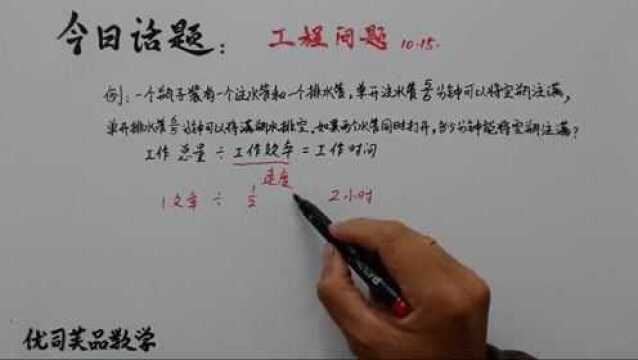 今日话题: 工程问题 10.15.
例: 一个瓶子装有一个注水管和一个排水管,单开注水管分钟可以将空瓶注满,
单开排水管分钟可以将满瓶水排空,如果两个水管同时打开,多少分钟能将空瓶注满?
工作总量 ÷ 工作效率 = 工作时间
速度
1 文章 ÷ 1/2 2小时
优司芙品数学